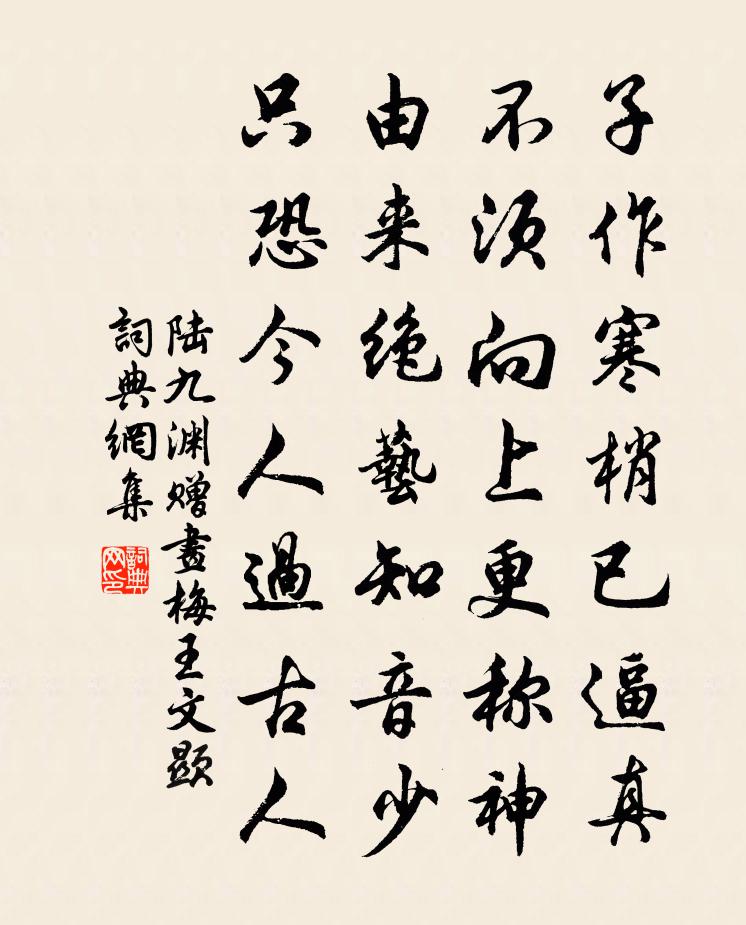 子作寒梢已逼真
不须向上更称神
由来绝藝知音少
只恐今人過古人
陆九渊赠畫梅王文显
詞典網集
詞典网印